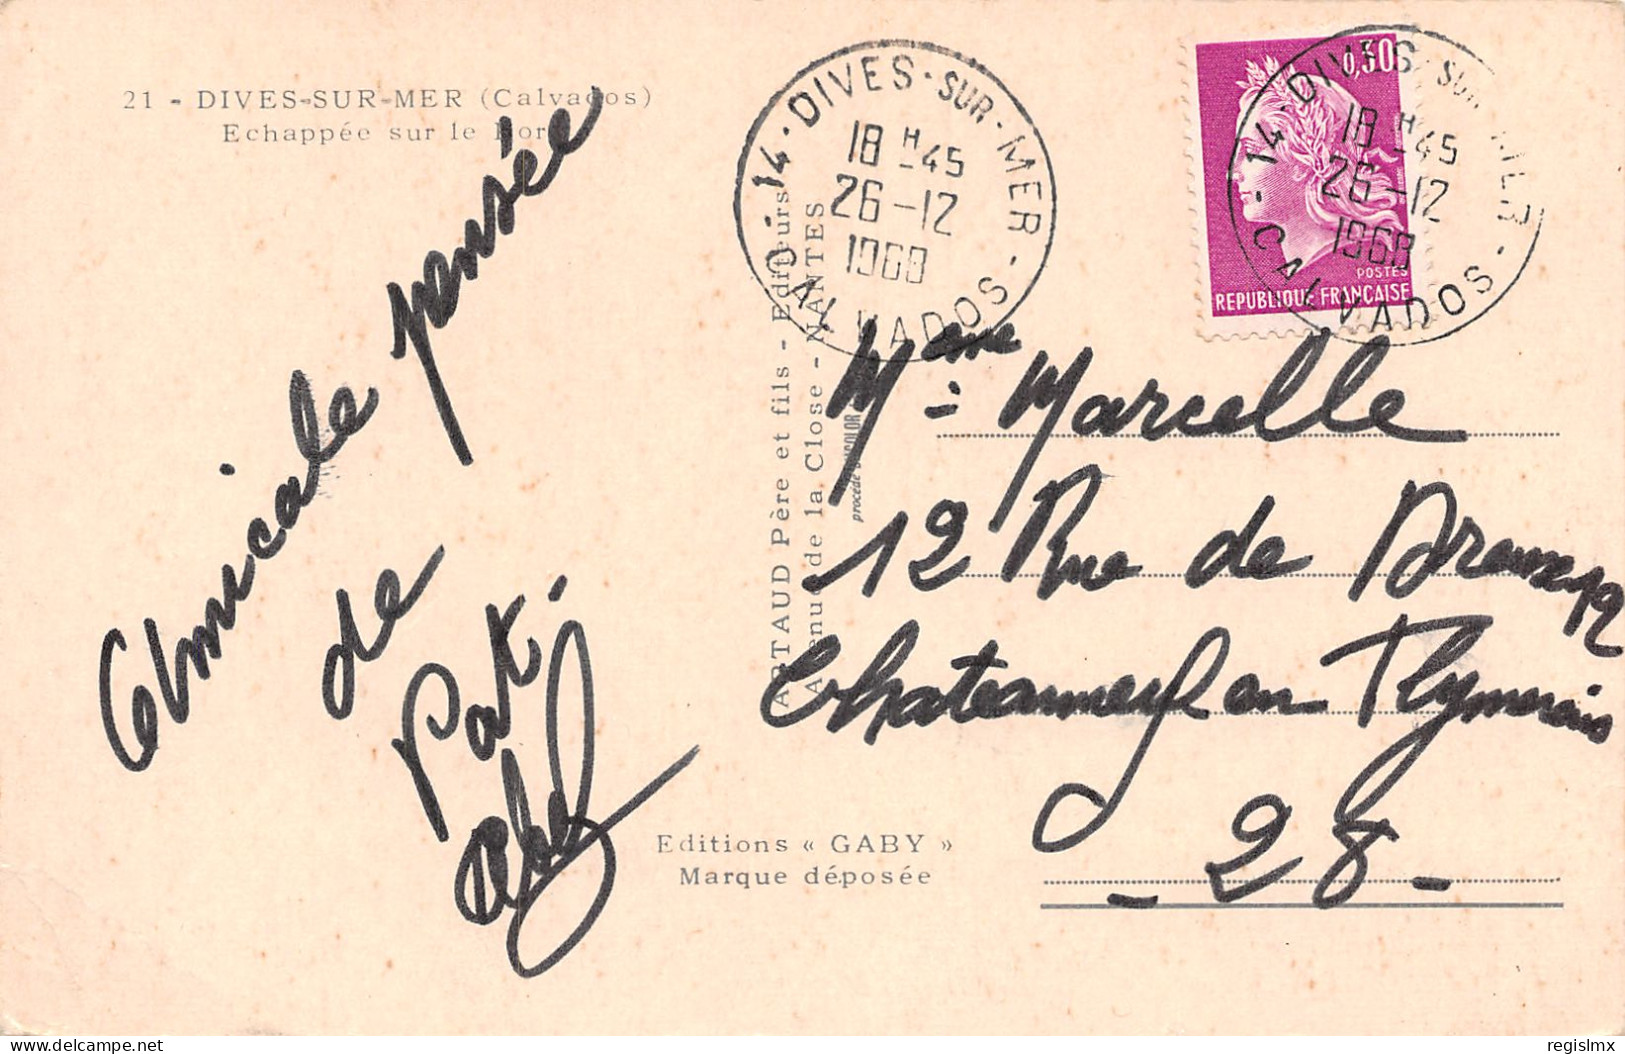 21 - DIVES-SUR-MER (Calvados)
Echappée sur le
Amicale pensée
de
Pat.
ARTAUD Père et fils - Editeurs
Avenue de la Close - NANTES
procédé
Editions « GABY »
Marque déposée
14 - DIVES-SUR-MER - CALVADOS
18 H 45
26-12
1968
0,30
POSTES
REPUBLIQUE FRANÇAISE
14 - DIVES-SUR-MER - CALVADOS
18 H 45
26-12
1968
Mme Marcelle
12 Rue de
Chateauneuf en Thymerais
- 28 -
regislmx
delcampe.net